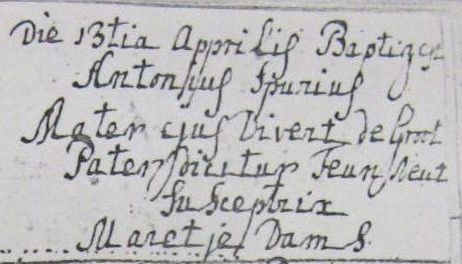 Die 13tia Apprilis Baptizat
Antonius Spurius
Mater ejus Divert de Groot
Pater dicitur Teunis
Susceptrix
Maretje Dams